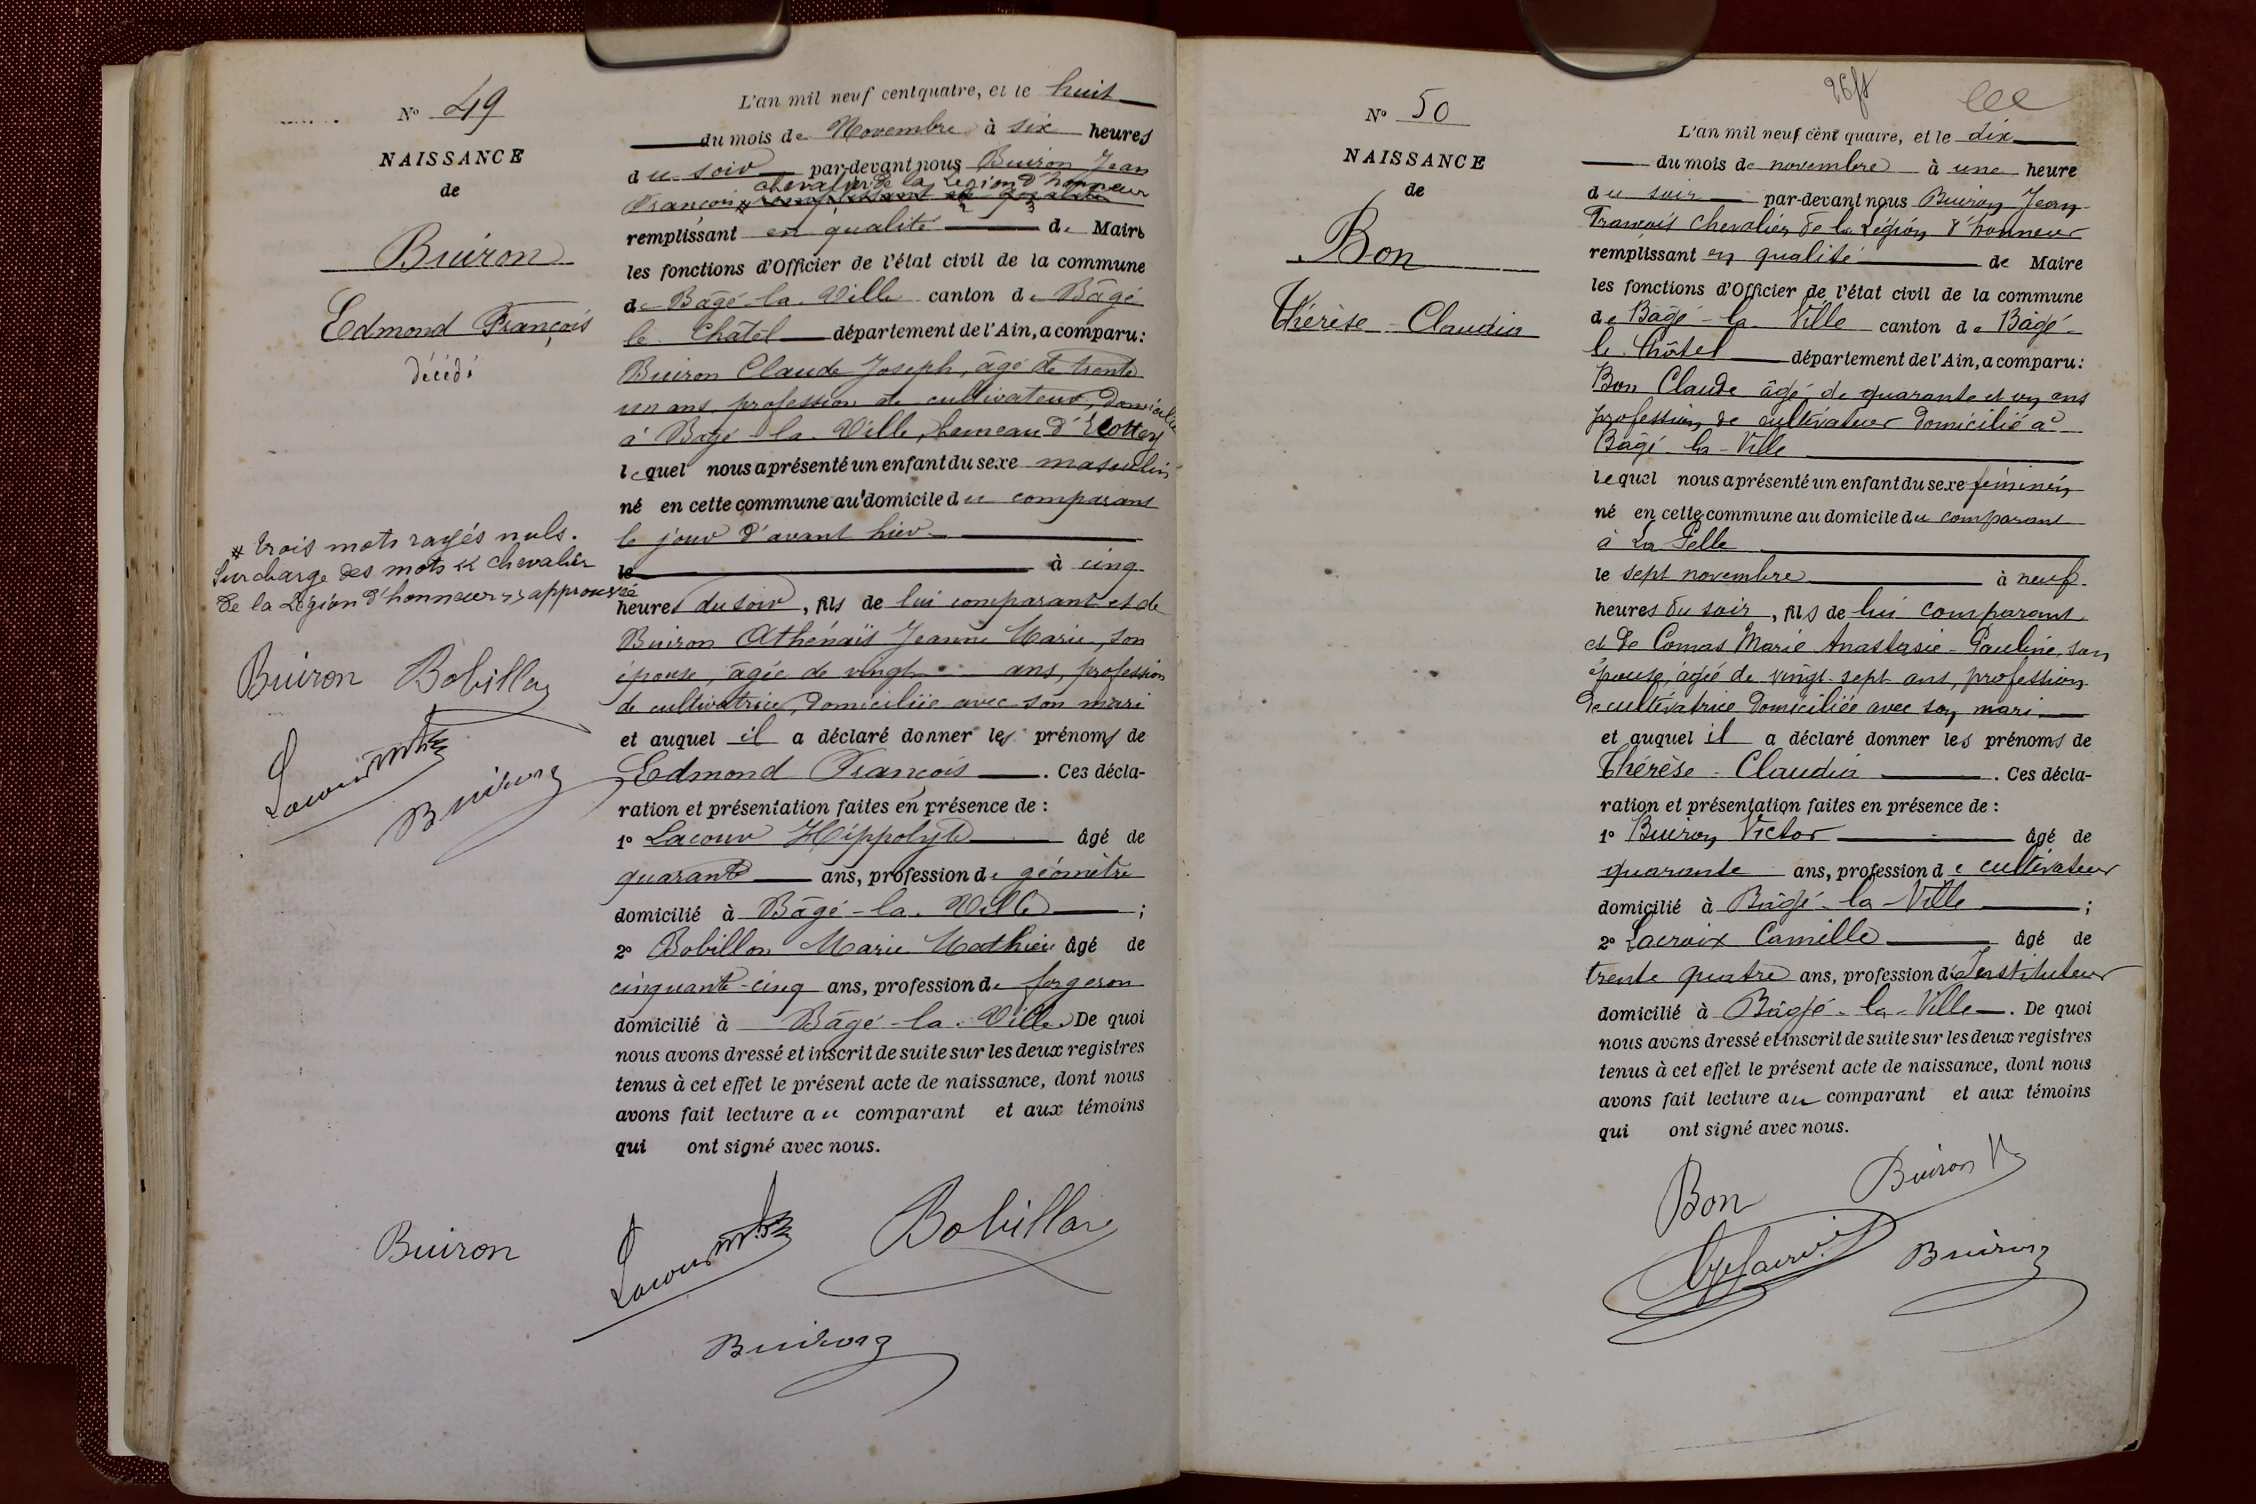 N° 49
NAISSANCE
de
Buiron
Edmond François
décédé
* trois mots rayés nuls.
Surcharge des mots « chevalier
de la Légion d'honneur » approuvée
Buiron Bobillon
Lacour
Buiron
L'an mil neuf cent quatre, et le huit
du mois de Novembre à six heures
du soir par-devant nous Buiron Jean
chevalier de la Légion d'honneur
François * remplissant en qualité
remplissant en qualité de Maire
les fonctions d'Officier de l'état civil de la commune
de Bâgé-la-Ville canton de Bâgé
le Châtel département de l'Ain, a comparu:
Buiron Claude Joseph, âgé de trente
un ans, profession de cultivateur, domicilié
à Bâgé-la-Ville, hameau d'
lequel nous a présenté un enfant du sexe masculin
né en cette commune au domicile du comparant
le jour d'avant hier
le à cinq
heures du soir, fils de lui comparant et de
Buiron Athénaïs Jeanne Marie, son
épouse, âgée de vingt ans, profession
de cultivatrice, domiciliée avec son mari
et auquel il a déclaré donner les prénoms de
Edmond François. Ces décla-
ration et présentation faites en présence de :
1° Lacour Hippolyte âgé de
quarante ans, profession de géomètre
domicilié à Bâgé-la-Ville ;
2° Bobillon Marie Mathieu âgé de
cinquante-cinq ans, profession de forgeron
domicilié à Bâgé-la-Ville De quoi
nous avons dressé et inscrit de suite sur les deux registres
tenus à cet effet le présent acte de naissance, dont nous
avons fait lecture au comparant et aux témoins
qui ont signé avec nous.
Buiron Lacour Bobillon
Buiron
26 ft
N° 50
NAISSANCE
de
Bon
Thérèse-Claudia
L'an mil neuf cent quatre, et le dix
du mois de novembre à une heure
du soir par-devant nous Buiron Jean
François chevalier de la Légion d'honneur
remplissant en qualité de Maire
les fonctions d'Officier de l'état civil de la commune
de Bâgé-la-Ville canton de Bâgé-
le Châtel département de l'Ain, a comparu:
Bon Claude âgé de quarante et un ans
profession de cultivateur domicilié à
Bâgé-la-Ville
lequel nous a présenté un enfant du sexe féminin
né en cette commune au domicile du comparant
à La
le sept novembre à neuf
heures du soir, fils de lui comparant
et de Comas Marie Anastasie-Pauline, son
épouse, âgée de vingt-sept ans, profession
de cultivatrice domiciliée avec son mari
et auquel il a déclaré donner les prénoms de
Thérèse-Claudia. Ces décla-
ration et présentation faites en présence de :
1° Buiron Victor âgé de
quarante ans, profession de cultivateur
domicilié à Bâgé-la-Ville ;
2° Lacroix Camille âgé de
trente quatre ans, profession d'Instituteur
domicilié à Bâgé-la-Ville. De quoi
nous avons dressé et inscrit de suite sur les deux registres
tenus à cet effet le présent acte de naissance, dont nous
avons fait lecture au comparant et aux témoins
qui ont signé avec nous.
Bon Buiron V
Lacroix Buiron